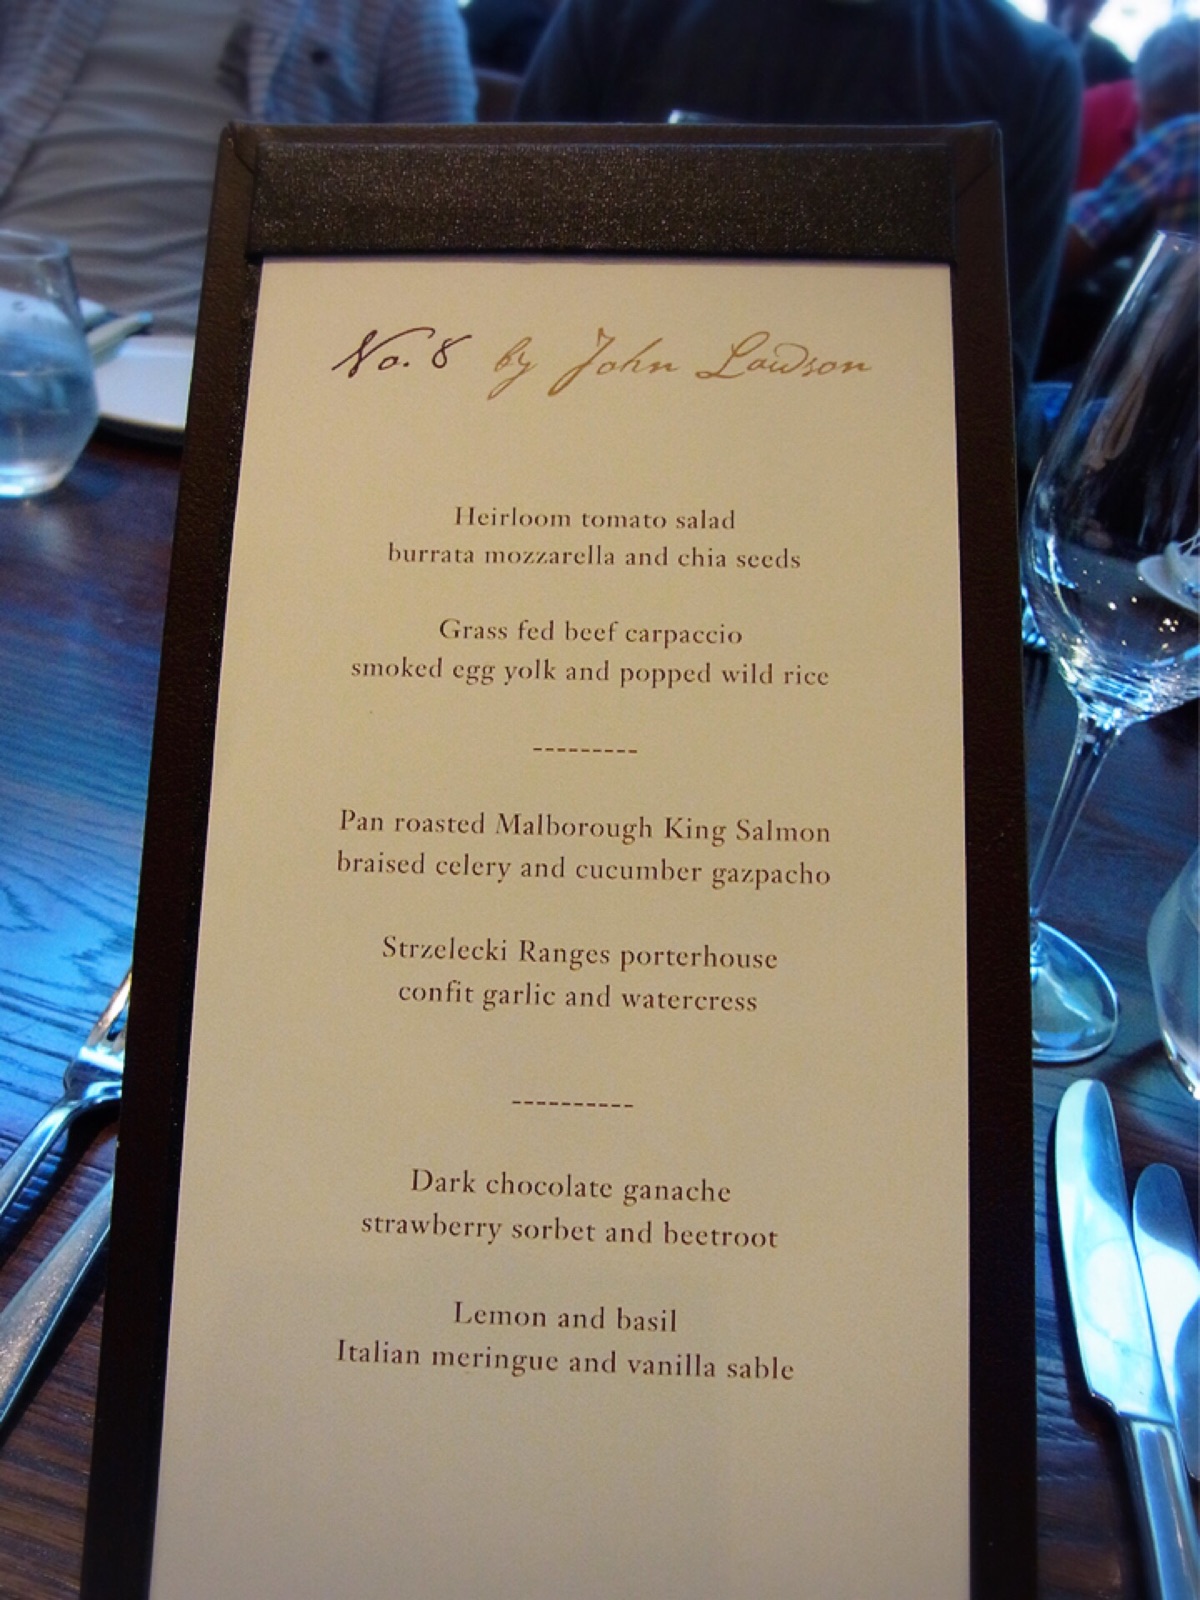 No. 8 by John Lawson
Heirloom tomato salad
burrata mozzarella and chia seeds
Grass fed beef carpaccio
smoked egg yolk and popped wild rice
---------
Pan roasted Malborough King Salmon
braised celery and cucumber gazpacho
Strzelecki Ranges porterhouse
confit garlic and watercress
----------
Dark chocolate ganache
strawberry sorbet and beetroot
Lemon and basil
Italian meringue and vanilla sable